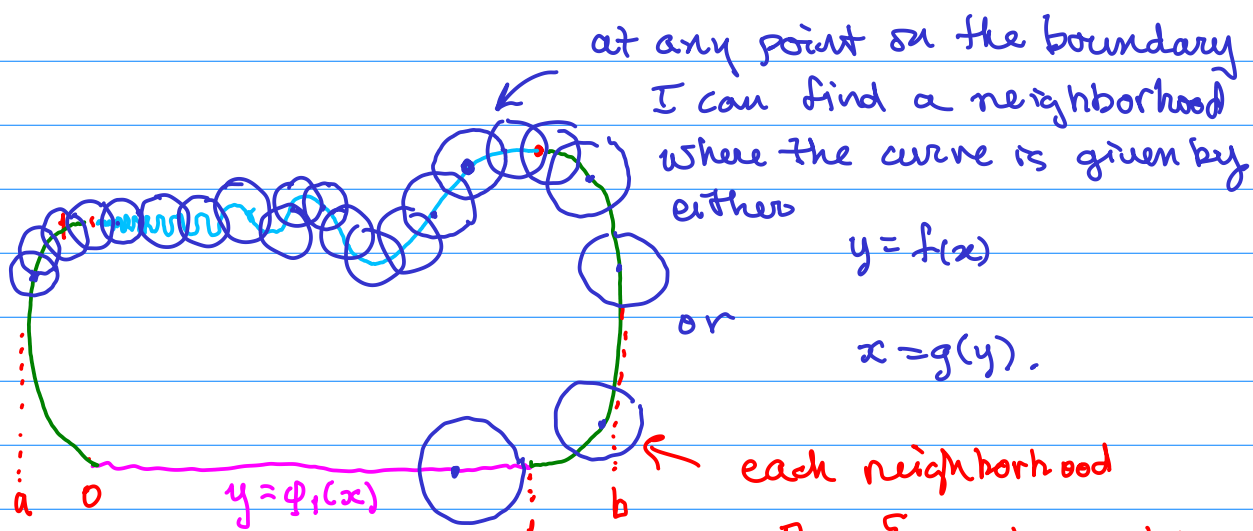 at any point on the boundary
I can find a neighborhood
where the curve is given by
either
y = f(x)
or
x = g(y).
each neighborhood
y = φ₁(x)
a
0
b